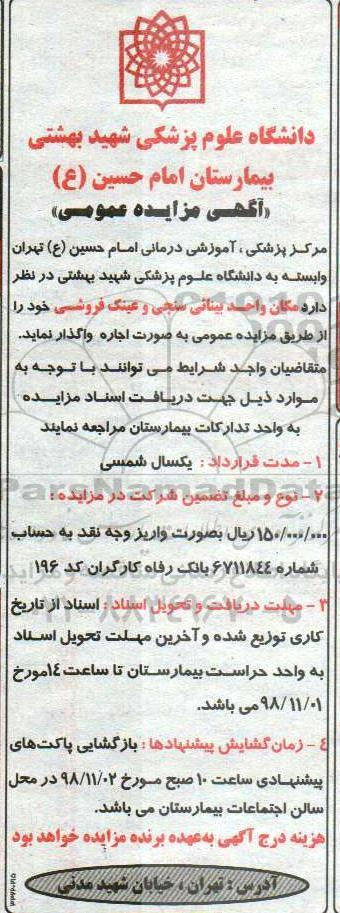 دانشگاه علوم پزشکی شهید بهشتی
بیمارستان امام حسین (ع)
«آگهی مزایده عمومی»
مرکز پزشکی ، آموزشی درمانی امام حسین (ع) تهران
وابسته به دانشگاه علوم پزشکی شهید بهشتی در نظر
دارد مکان واحد بینائی سنجی و عینک فروشی خود را
از طریق مزایده عمومی به صورت اجاره واگذار نماید.
متقاضیان واجد شرایط می توانند با توجه به
موارد ذیل جهت دریافت اسناد مزایده
به واحد تدارکات بیمارستان مراجعه نمایند
۱- مدت قرارداد : یکسال شمسی
ParsNamadData
۲- نوع و مبلغ تضمین شرکت در مزایده :
۱۵۰/۰۰۰/۰۰۰ ریال بصورت واریز وجه نقد به حساب
شماره ۶۷۱۱۸۴۴ بانک رفاه کارگران کد ۱۹۶
۳- مهلت دریافت و تحویل اسناد : اسناد از تاریخ
۰۲۱-۸۸۳۴۹۶۷۰-۵
کاری توزیع شده و آخرین مهلت تحویل اسناد
به واحد حراست بیمارستان تا ساعت ۱۴ مورخ
۹۸/۱۱/۰۱ می باشد.
۴- زمان گشایش پیشنهادها : بازگشایی پاکت‌های
پیشنهادی ساعت ۱۰ صبح مورخ ۹۸/۱۱/۰۲ در محل
سالن اجتماعات بیمارستان می باشد.
هزینه درج آگهی به‌عهده برنده مزایده خواهد بود
آدرس : تهران ، خیابان شهید مدنی